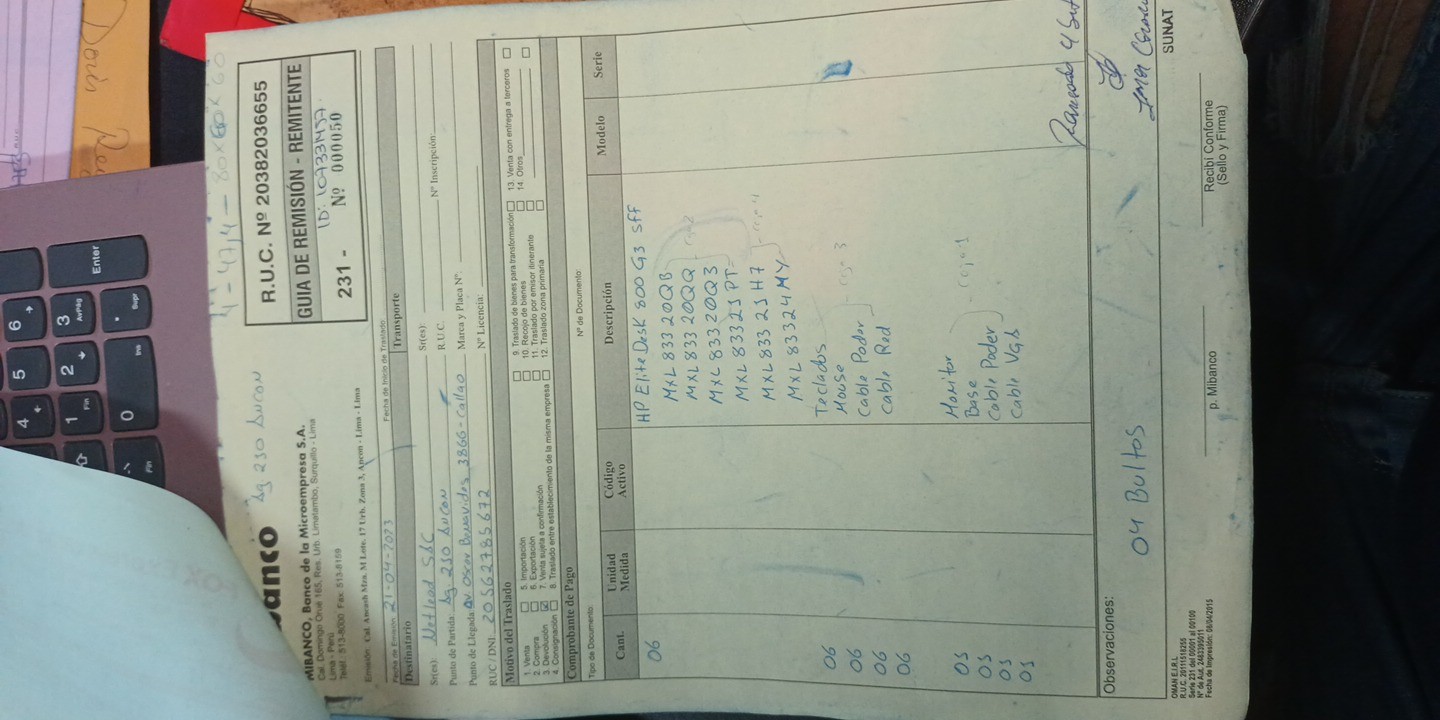 banco Ag 230 Ancon
MIBANCO, Banco de la Microempresa S.A.
Cal. Domingo Orué 165, Res. Urb. Limatambo, Surquillo - Lima
Lima - Perú
Telf.: 513-8000 Fax: 513-8159
Emisión: Cal. Ancash Mza. M Lote. 17 Urb. Zona 3, Ancon - Lima - Lima
R.U.C. Nº 20382036655
GUIA DE REMISIÓN - REMITENTE
ID: 10733457
231 - Nº 000050
Fecha de Emisión: 21-04-2023 Fecha de Inicio de Traslado:
Destinatario Transporte
Sr(es): Netlead SAC Sr(es):
Punto de Partida: Ag 230 Ancon R.U.C. Nº Inscripción:
Punto de Llegada: Av Oscar Benavides 3866 - callao Marca y Placa Nº:
RUC / DNI: 20562785672 Nº Licencia:
Motivo del Traslado
1. Venta 5. Importación 9. Traslado de bienes para transformación 13. Venta con entrega a terceros
2. Compra 6. Exportación 10. Recojo de bienes 14. Otros
3. Devolución 7. Venta sujeta a confirmación 11. Traslado por emisor itinerante
4. Consignación 8. Traslado entre establecimiento de la misma empresa 12. Traslado zona primaria
Comprobante de Pago
Tipo de Documento: Nº de Documento:
Cant. Unidad Medida Código Activo Descripción Modelo Serie
06 HP EliteDesk 800 G3 Sff
MXL 833 20QB
MXL 833 20QQ
MXL 833 20Q3
MXL 833 21PT
MXL 833 21H7
MXL 833 24MY
06 Teclados
06 Mouse
06 Cable Poder
06 Cable Red
caja 3
05 Monitor
05 Base
05 Cable Poder
05 Cable VGA
caja 1
Observaciones:
04 Bultos
p. Mibanco
Recibí Conforme
(Sello y Firma)
SUNAT
OMAN E.I.R.L.
R.U.C. 20111518255
Serie 231 del 00001 al 00100
Nº de Aut. 2463399011
Fecha de Impresión: 08/04/2015
Enter
6
3
AvPág
Supr
5
2
Ins
4
1
Fin
0
Fin